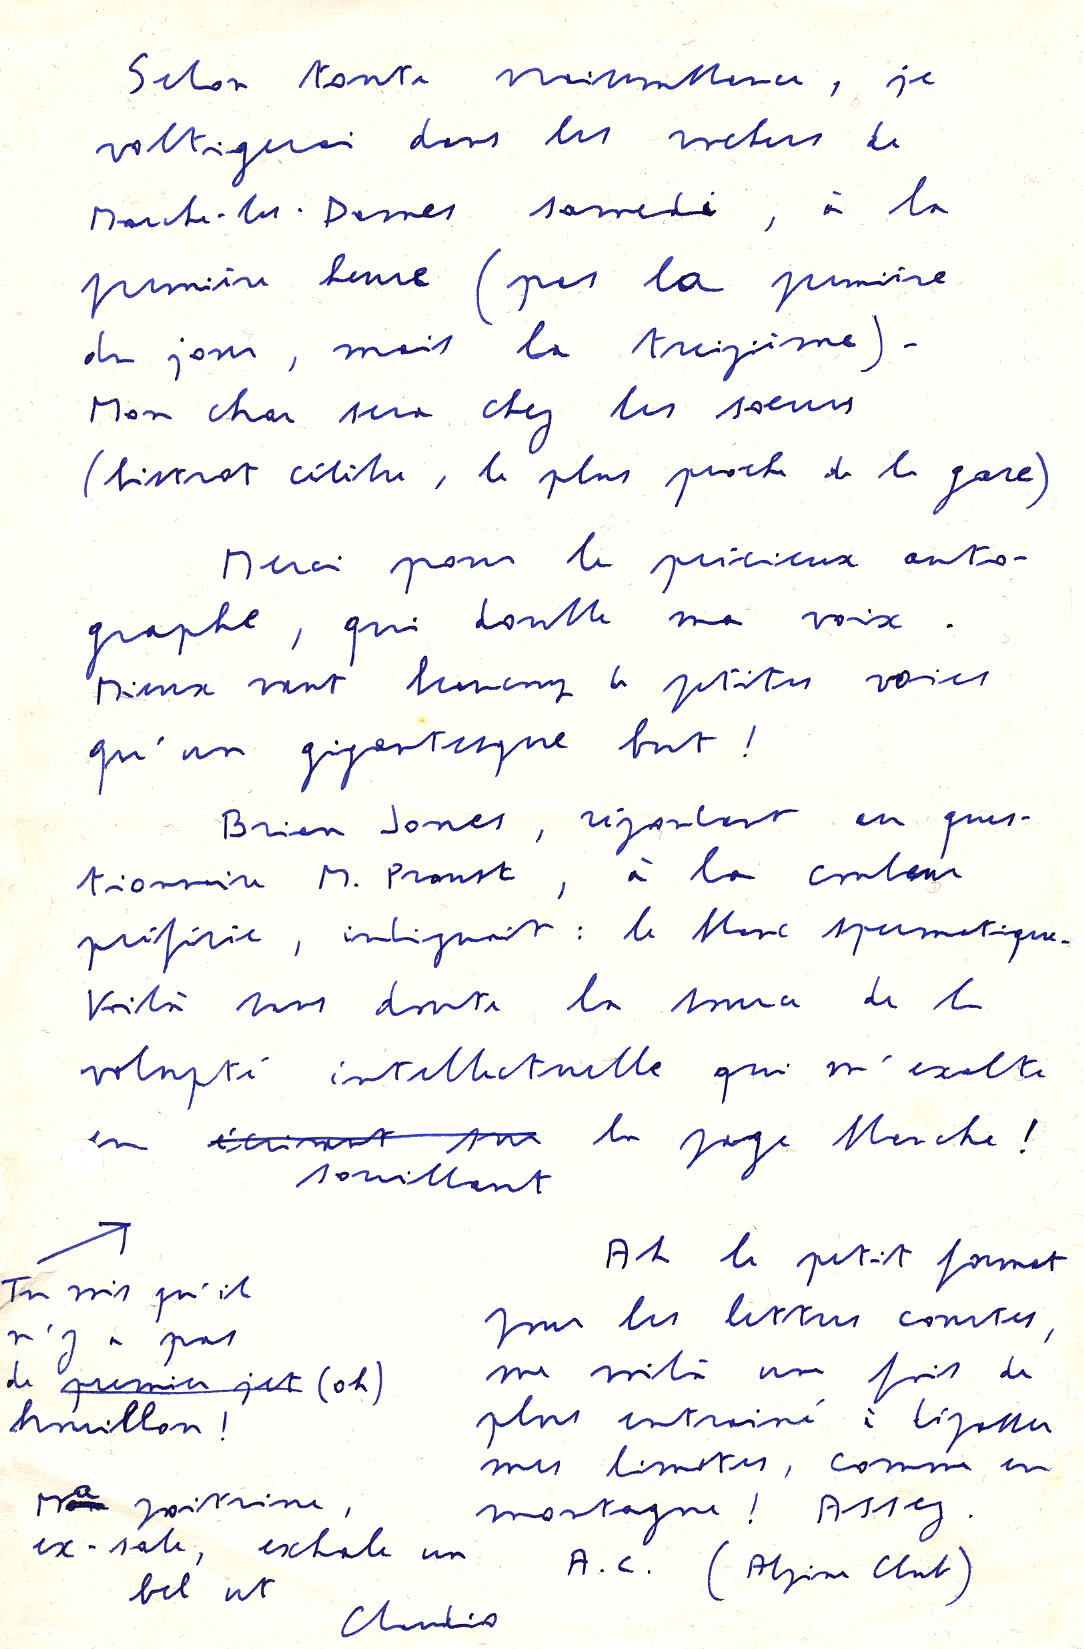 Selon toute vraisemblance, je
voltigerai dans les rochers de
Marche-les-Dames samedi, à la
première heure (pas la première
du jour, mais la treizième).
Mon char sera chez les soeurs
(bistrot célèbre, le plus proche de la gare)
Merci pour le précieux auto-
graphe, qui double ma voix.
Mieux vaut beaucoup de petites voies
qu'un gigantesque but !
Brian Jones, répondant au ques-
tionnaire M. Proust, à la couleur
préférée, indiquait : le blanc spermatique.
Voilà sans doute la source de la
volupté intellectuelle qui m'exalte
en écrivant sur la page blanche !
souillant
Tu vois qu'il
n'y a pas
de premier jet (oh)
brouillon !
Ma poitrine,
ex-sale, exhale un
bel ut
Ah le petit format
pour les lettres courtes,
me voilà une fois de
plus entrainé à dépasser
mes limites, comme en
montagne ! Assez.
A.C. (Alpine Club)
Claudio